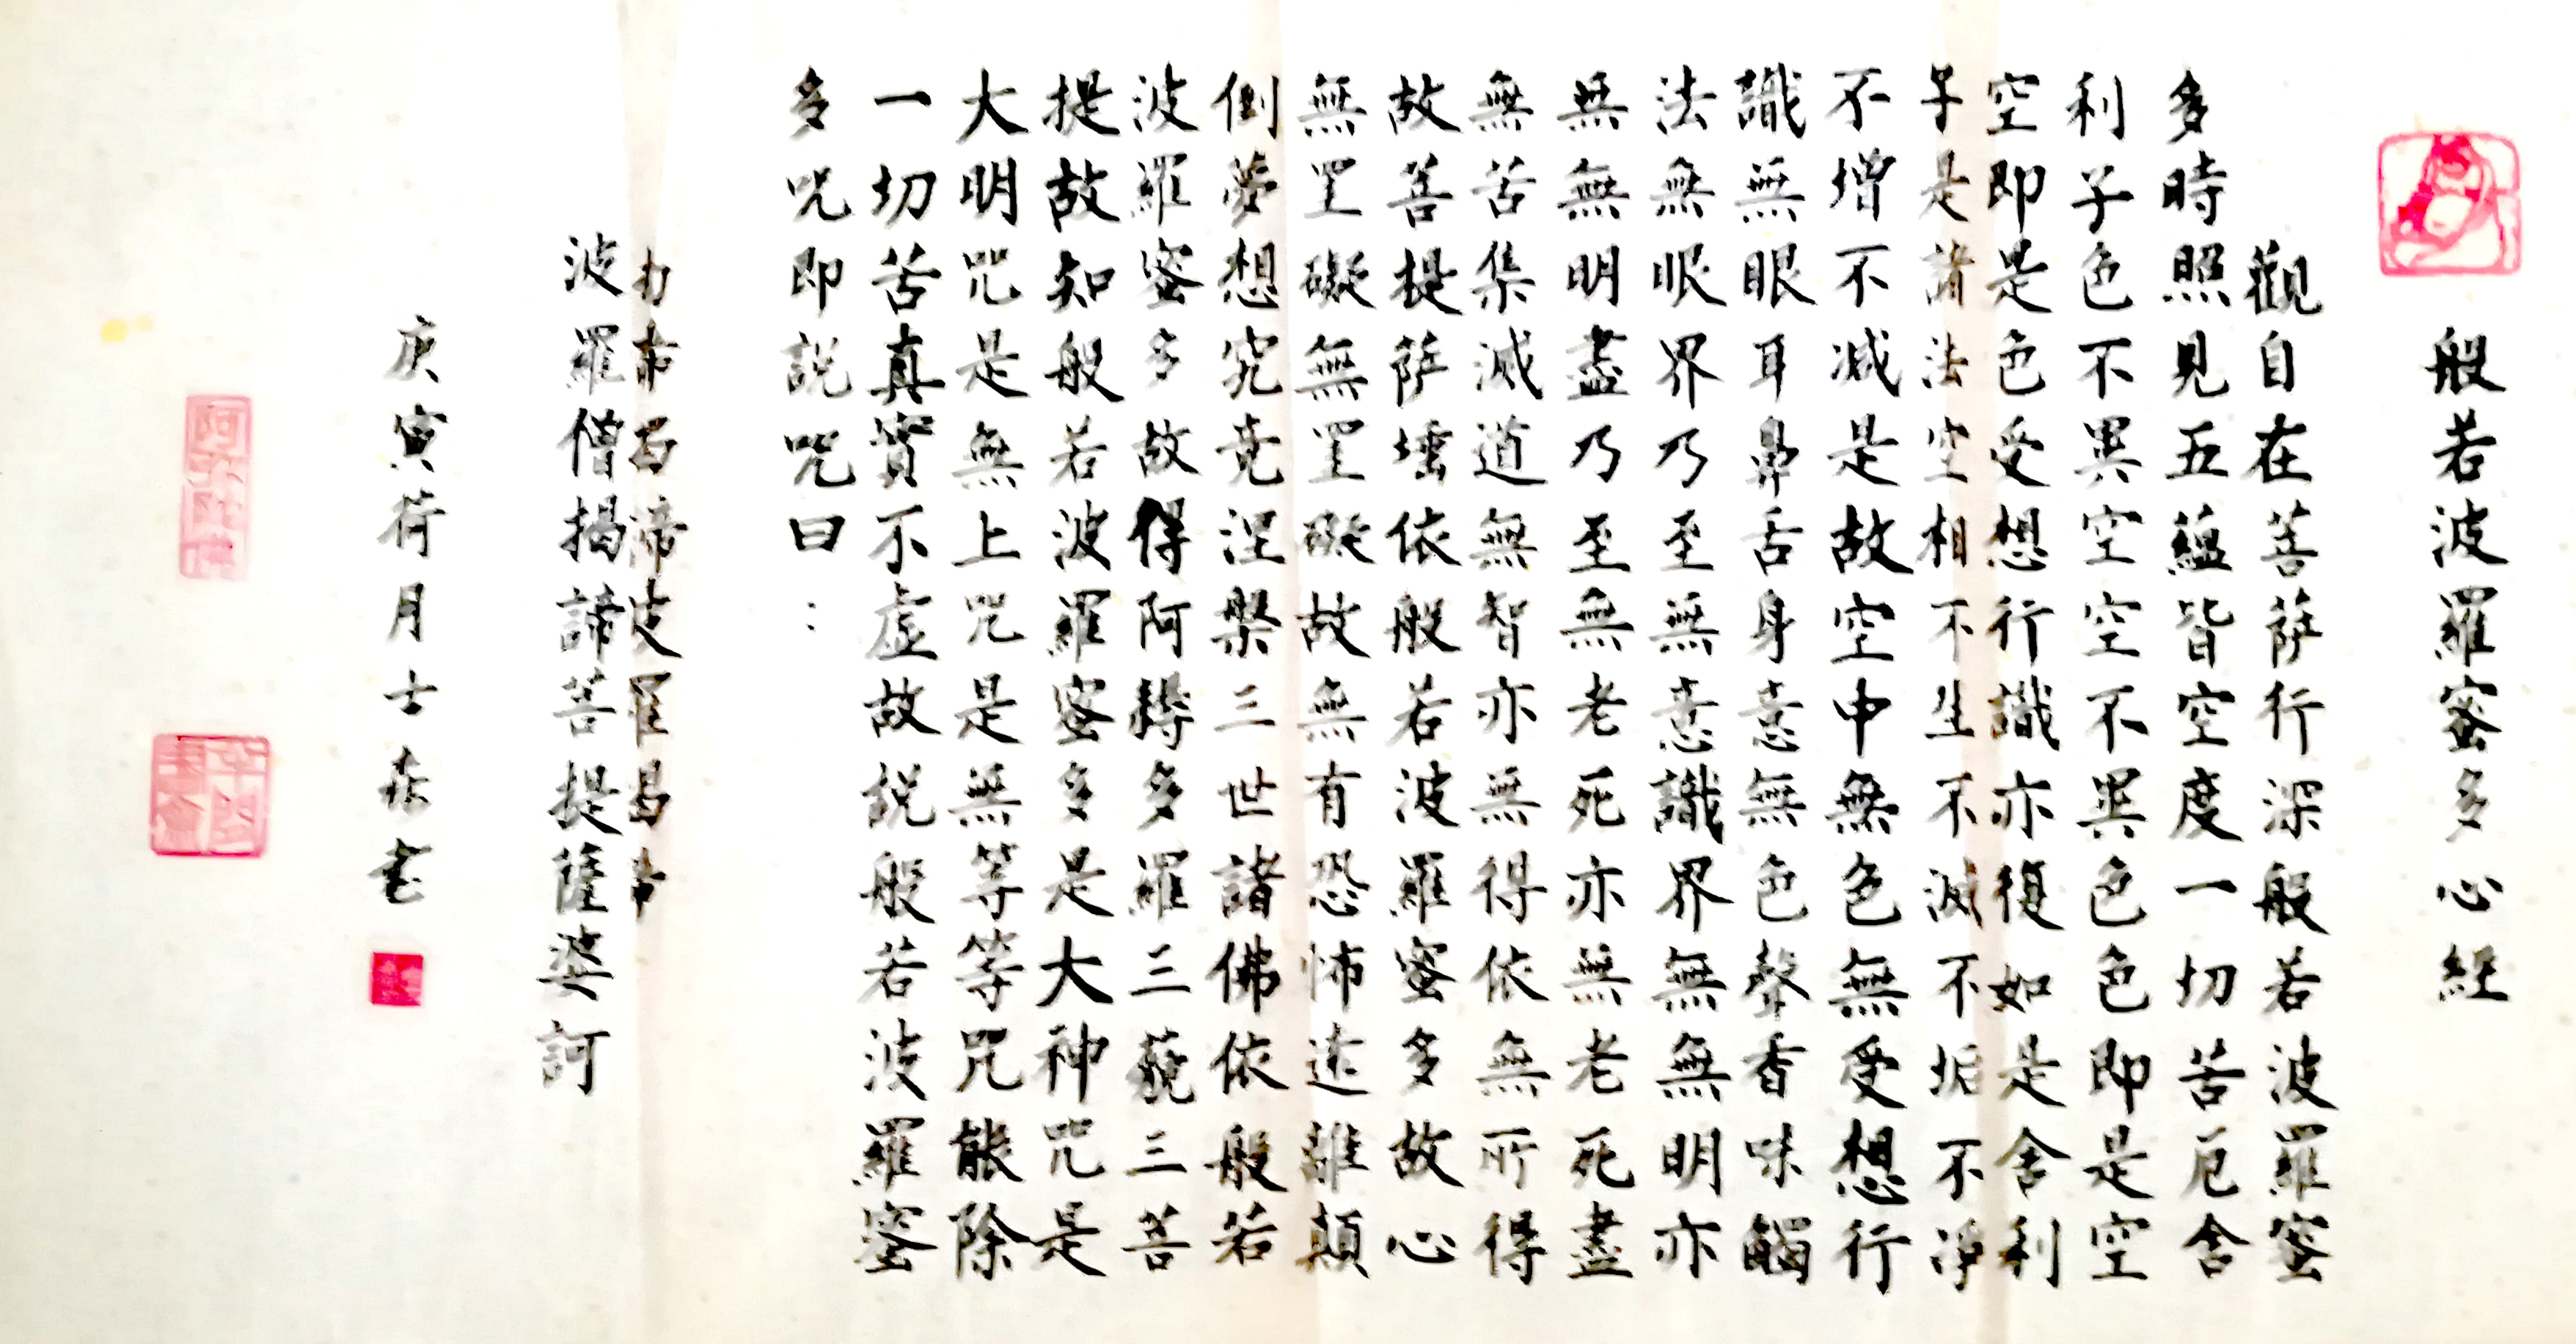 般若波羅蜜多心經
觀自在菩薩行深般若波羅蜜
多時照見五蘊皆空度一切苦厄舍
利子色不異空空不異色色即是空
空即是色受想行識亦復如是舍利
子是諸法空相不生不滅不垢不淨
不增不減是故空中無色無受想行
識無眼耳鼻舌身意無色聲香味觸
法無眼界乃至無意識界無無明亦
無無明盡乃至無老死亦無老死盡
無苦集滅道無智亦無得依無所得
故菩提薩埵依般若波羅蜜多故心
無罣礙無罣礙故無有恐怖遠離顛
倒夢想究竟涅槃三世諸佛依般若
波羅蜜多故得阿耨多羅三藐三菩
提故知般若波羅蜜多是大神咒是
大明咒是無上咒是無等等咒能除
一切苦真實不虛故說般若波羅蜜
多咒即說咒曰：
諦波羅揭諦
波羅僧揭諦菩提薩婆訶
庚寅荷月士森書